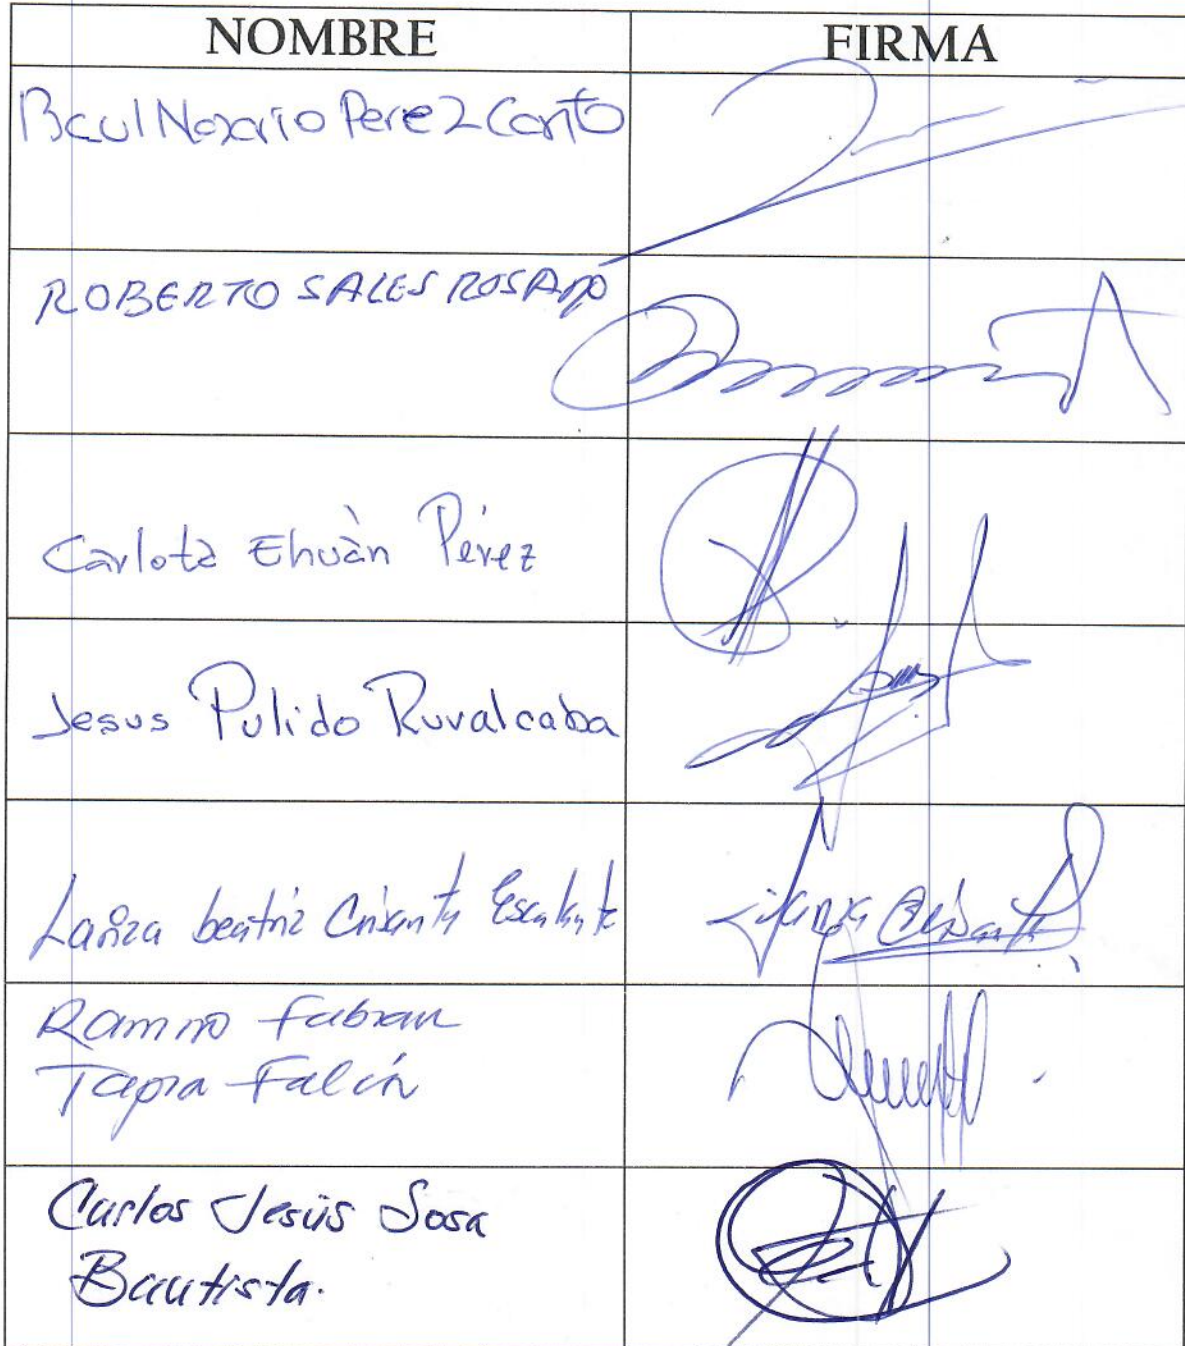 NOMBRE FIRMA
Raul Nazario Perez Canto
ROBERTO SALES ROSADO
Carlota Ehuàn Pérez
Jesus Pulido Ruvalcaba
beatriz Crisanty Escalante
Ramiro Fabian
Tapia Falcón
Carlos Jesús Sosa
Bautista.